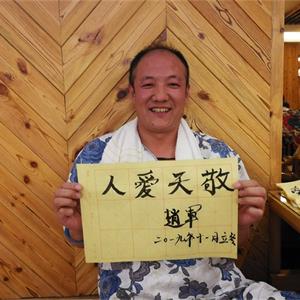 敬天愛人
趙軍
二〇一九年十一月立冬